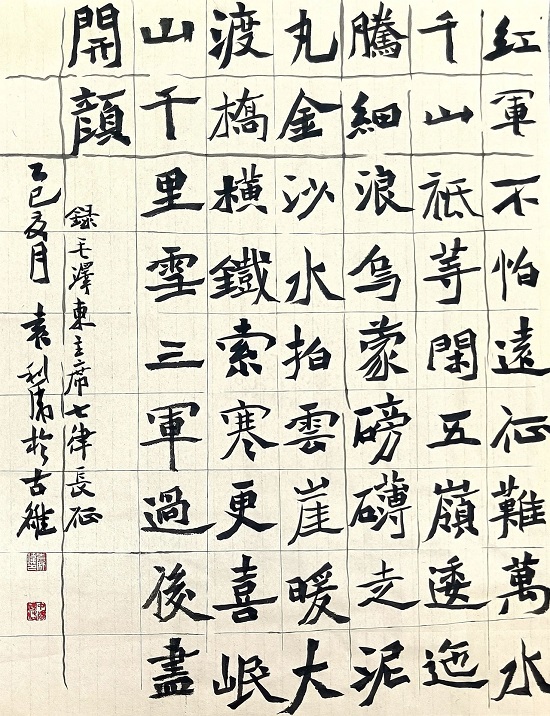 红軍不怕遠征難萬水
千山祗等閑五嶺逶迤
騰細浪烏蒙磅礴走泥
丸金沙水拍雲崖暖大
渡橋横鐵索寒更喜岷
山千里雪三軍過後盡
開顔
録毛澤東主席七律長征
乙巳夏月袁利於古雒